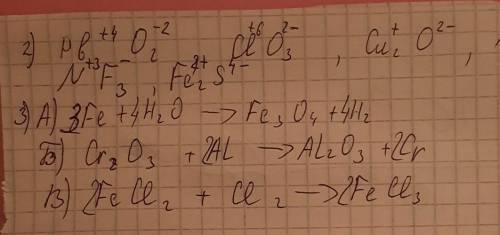 2) Pb⁺⁴O₂⁻², Cl⁺⁶O₃²⁻, Cu₂⁺O²⁻,
N⁺³F₃⁻, Fe₂²⁺S⁴⁻
3) А) 3Fe + 4H₂O → Fe₃O₄ + 4H₂
Б) Cr₂O₃ + 2AL → AL₂O₃ + 2Cr
В) 2FeCl₂ + Cl₂ → 2FeCl₃